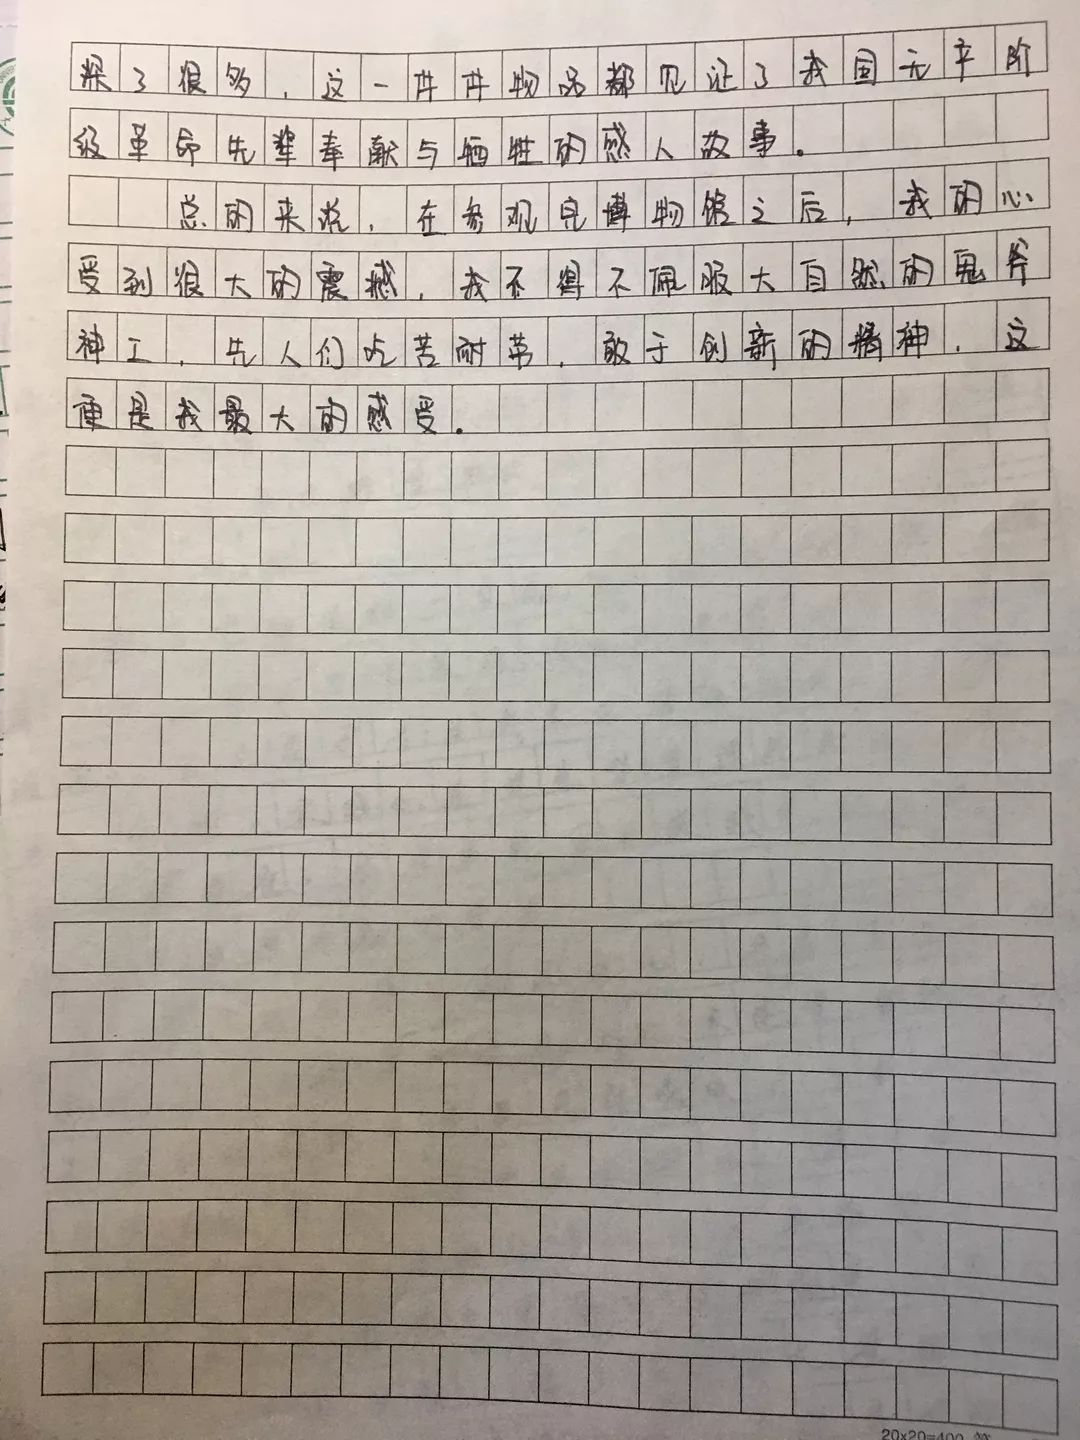 深了很多，这一件件物品都见证了我国无产阶
级革命先辈奉献与牺牲的感人故事。
总的来说，在参观完博物馆之后，我的心
受到很大的震撼，我不得不佩服大自然的鬼斧
神工，先人们吃苦耐劳，敢于创新的精神，这
便是我最大的感受。
20×20=400